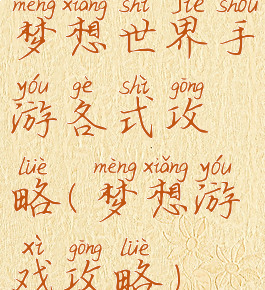 mèng xiǎng shì jiè shǒu
梦想世界手
yóu gè shì gōng
游各式攻
lüè mèng xiǎng yóu
略(梦想游
xì gōng lüè
戏攻略)